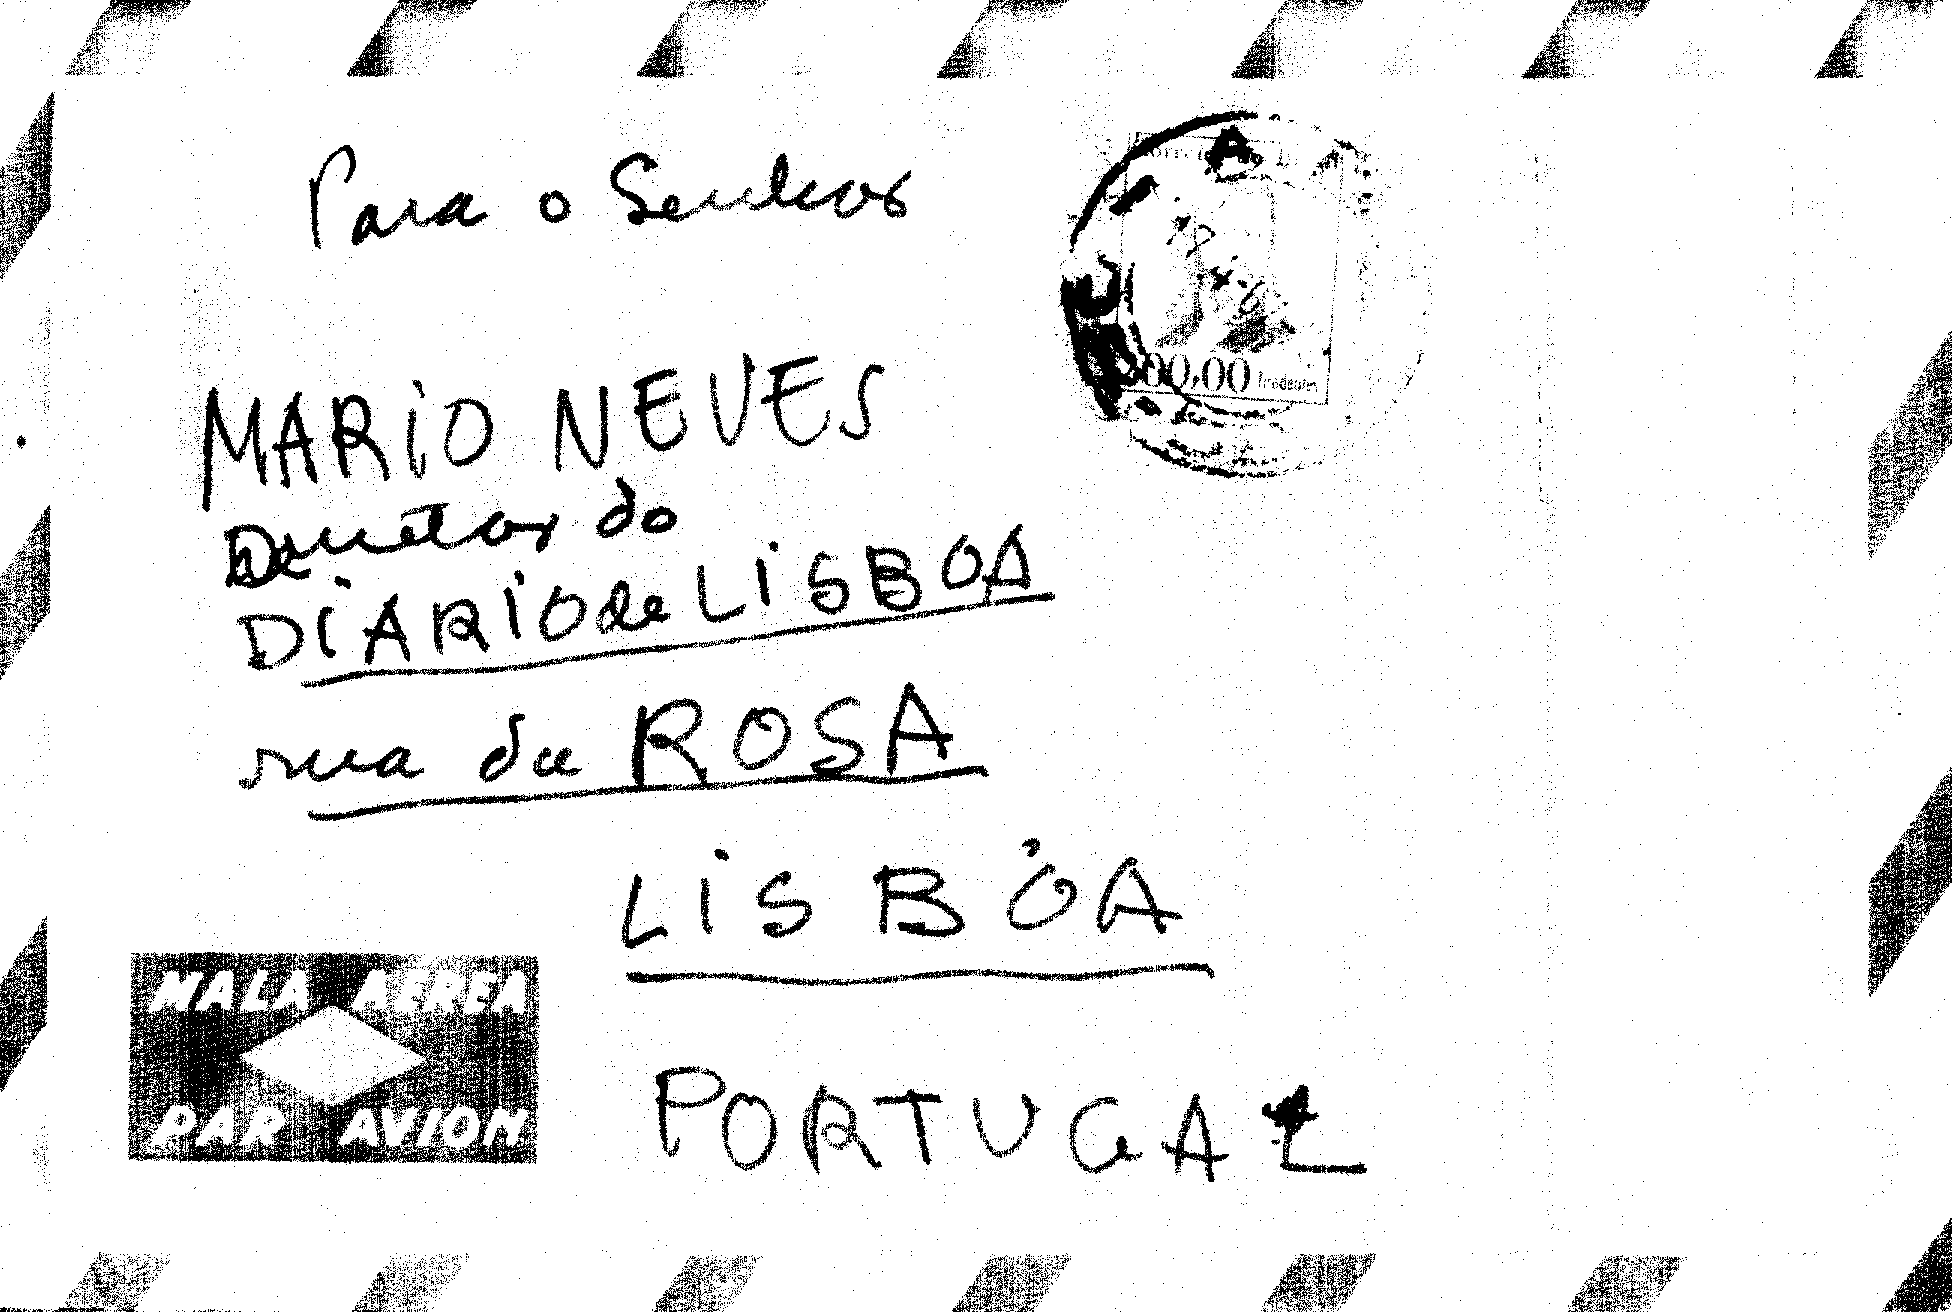 Para o Senhor
MARIO NEVES
Diretor do
DIARIO de LISBOA
rua da ROSA
LISBOA
PORTUGAL
MALA AEREA
PAR AVION
00,00